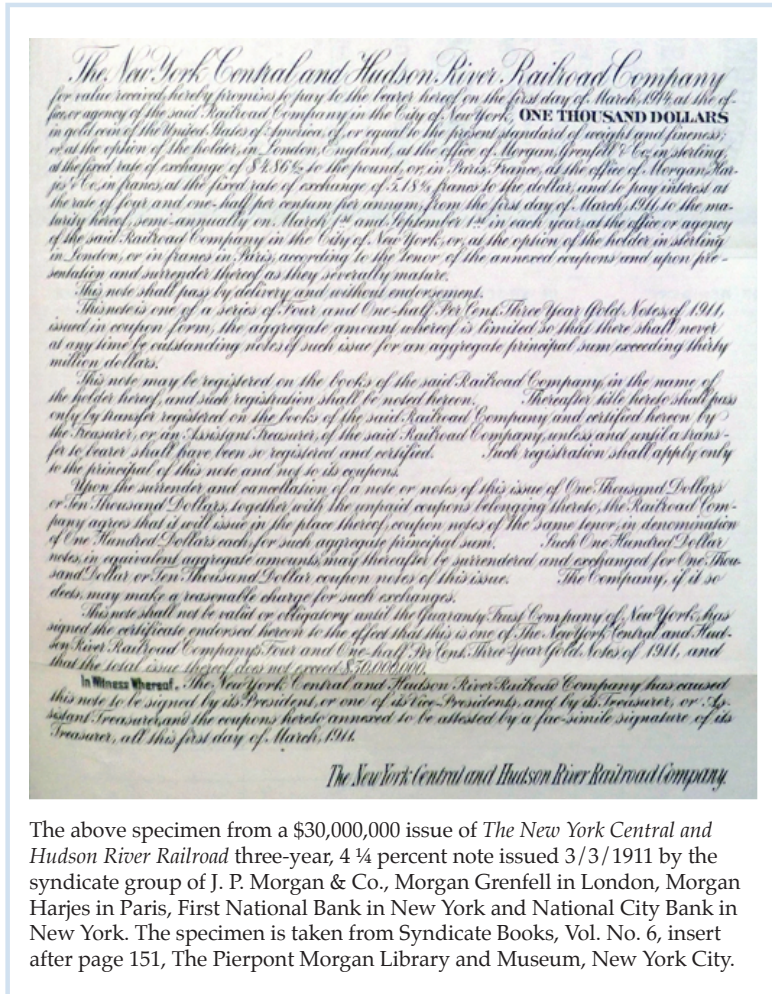 The New York Central and Hudson River Railroad Company
for value received, hereby promises to pay to the bearer hereof on the first day of March, 1914, at the of-
fice or agency of the said Railroad Company in the City of New York, ONE THOUSAND DOLLARS
in gold coin of the United States of America, of, or equal to the present standard of weight and fineness;
or, at the option of the holder, in London, England, at the office of Morgan, Grenfell & Co., in sterling,
at the fixed rate of exchange of to the pound, or, in Paris, France, at the office of Morgan, Har-
jes & Co., in francs, at the fixed rate of exchange of francs to the dollar, and to pay interest at
the rate of four and one-half per centum per annum, from the first day of March, 1911, to the ma-
turity hereof, semi-annually on March 1st and September 1st in each year, at the office or agency
of the said Railroad Company in the City of New York, or, at the option of the holder in sterling
in London, or in francs in Paris, according to the tenor of the annexed coupons and upon pre-
sentation and surrender thereof as they severally mature.
This note shall pass by delivery and without endorsement.
This note is one of a series of Four and One-half Per Cent. Three Year Gold Notes of 1911,
issued in coupon form, the aggregate amount whereof is limited so that there shall never
at any time be outstanding notes of such issue for an aggregate principal sum exceeding thirty
million dollars.
This note may be registered on the books of the said Railroad Company, in the name of
the holder hereof, and such registration shall be noted hereon. Thereafter title hereto shall pass
only by transfer registered on the books of the said Railroad Company and certified hereon by
the Treasurer, or an Assistant Treasurer, of the said Railroad Company, unless and until a trans-
fer to bearer shall have been so registered and certified. Such registration shall apply only
to the principal of this note and not to its coupons.
Upon the surrender and cancellation of a note or notes of this issue of One Thousand Dollars
or Ten Thousand Dollars, together with the unpaid coupons belonging thereto, the Railroad Com-
pany agrees that it will issue in the place thereof, coupon notes of the same tenor, in denomination
of One Hundred Dollars each, for such aggregate principal sum. Such One Hundred Dollar
notes, in equivalent aggregate amounts, may thereafter be surrendered and exchanged for One Thou-
sand Dollar or Ten Thousand Dollar coupon notes of this issue. The Company, if it so
elects, may make a reasonable charge for such exchanges.
This note shall not be valid or obligatory until the Guaranty Trust Company of New York, has
signed the certificate endorsed hereon to the effect that this is one of The New York Central and Hud-
son River Railroad Company's Four and One-half Per Cent. Three Year Gold Notes of 1911, and
that the total issue thereof does not exceed $30,000,000.
In Witness Whereof, The New York Central and Hudson River Railroad Company has caused
this note to be signed by its President, or one of its Vice-Presidents, and by its Treasurer, or As-
sistant Treasurer, and the coupons hereto annexed to be attested by a fac-simile signature of its
Treasurer, all this first day of March, 1911.
The New York Central and Hudson River Railroad Company.
The above specimen from a $30,000,000 issue of The New York Central and
Hudson River Railroad three-year, 4 ¼ percent note issued 3/3/1911 by the
syndicate group of J. P. Morgan & Co., Morgan Grenfell in London, Morgan
Harjes in Paris, First National Bank in New York and National City Bank in
New York. The specimen is taken from Syndicate Books, Vol. No. 6, insert
after page 151, The Pierpont Morgan Library and Museum, New York City.